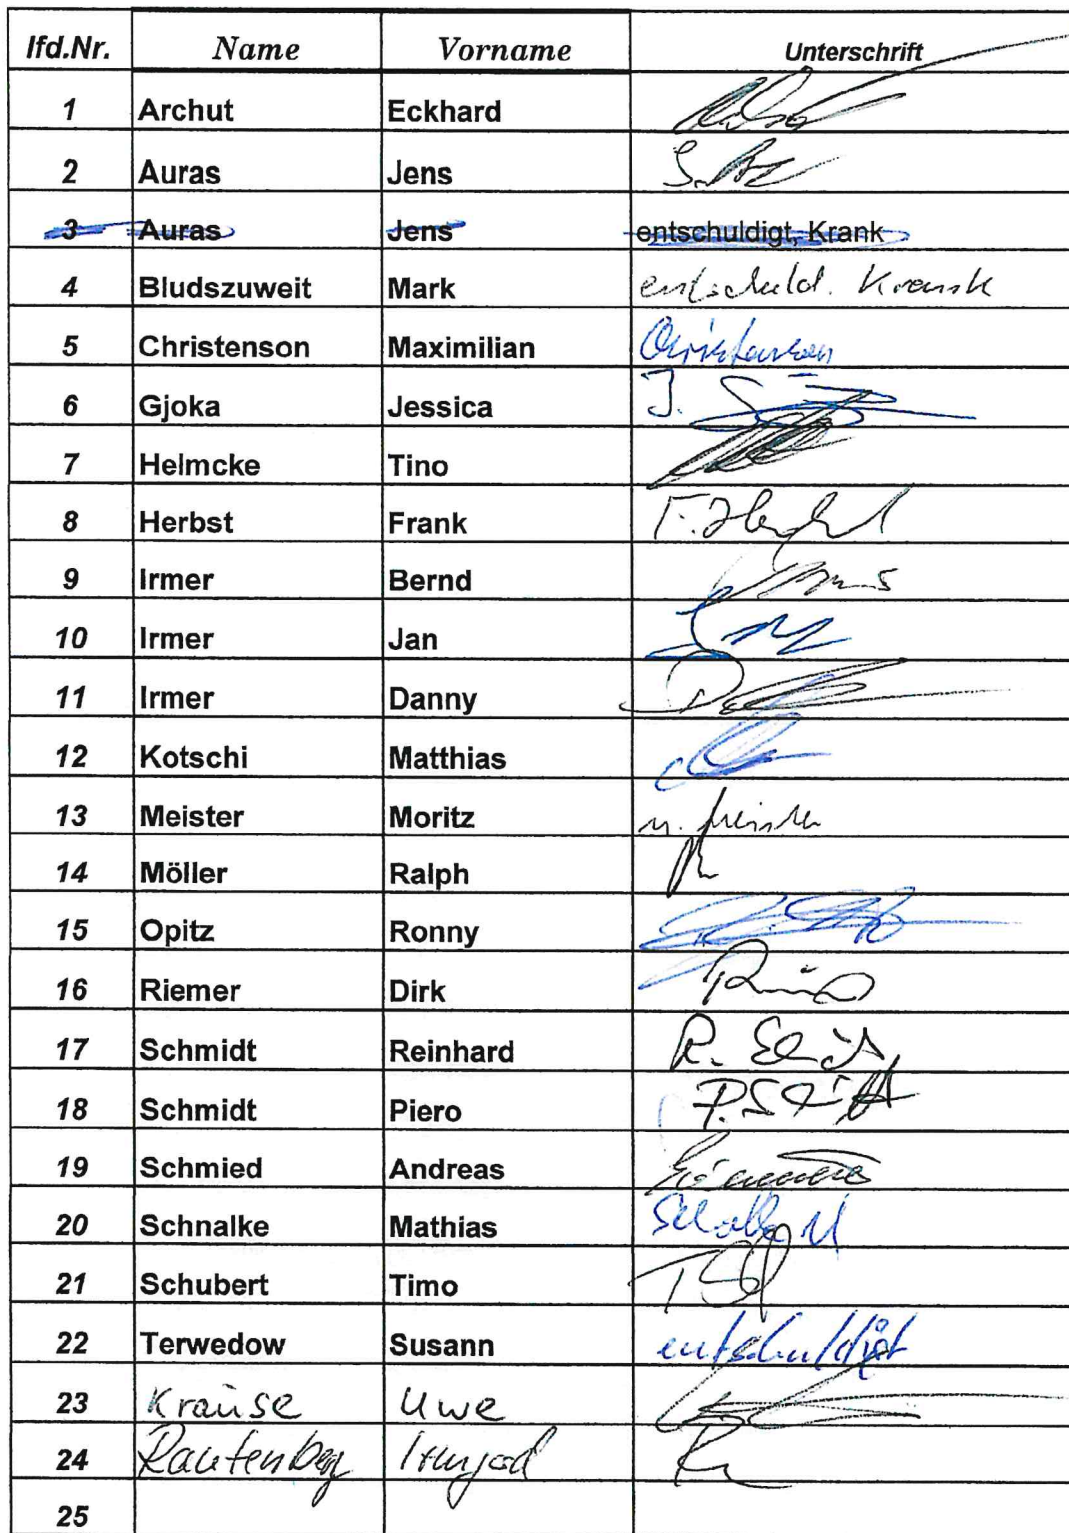 lfd.Nr. Name Vorname Unterschrift
1 Archut Eckhard
2 Auras Jens
3 Auras Jens entschuldigt, Krank
4 Bludszuweit Mark entschuld. Krank
5 Christenson Maximilian Christenson
6 Gjoka Jessica J.
7 Helmcke Tino
8 Herbst Frank F. Herbst
9 Irmer Bernd
10 Irmer Jan
11 Irmer Danny
12 Kotschi Matthias
13 Meister Moritz M. Meister
14 Möller Ralph
15 Opitz Ronny
16 Riemer Dirk
17 Schmidt Reinhard
18 Schmidt Piero
19 Schmied Andreas
20 Schnalke Mathias
21 Schubert Timo
22 Terwedow Susann entschuldigt
23 Krause Uwe
24 Rautenberg Irmgard
25